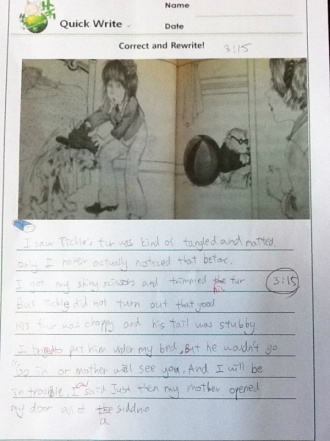 Name
Quick Write
Date
Correct and Rewrite!
3:15
I saw Tickle's fur was kind of tangled and matted.
only I never actually noticed that before.
I got my shiny scissors and trimmed the fur
his
3:15
But Tickle did not turn out that good
His fur was choppy and his tail was stubby
I put him under my bed, But he wouldn't go
in or mother will see you. And I will be
in trouble, I said Just then my mother opened
my door and
a